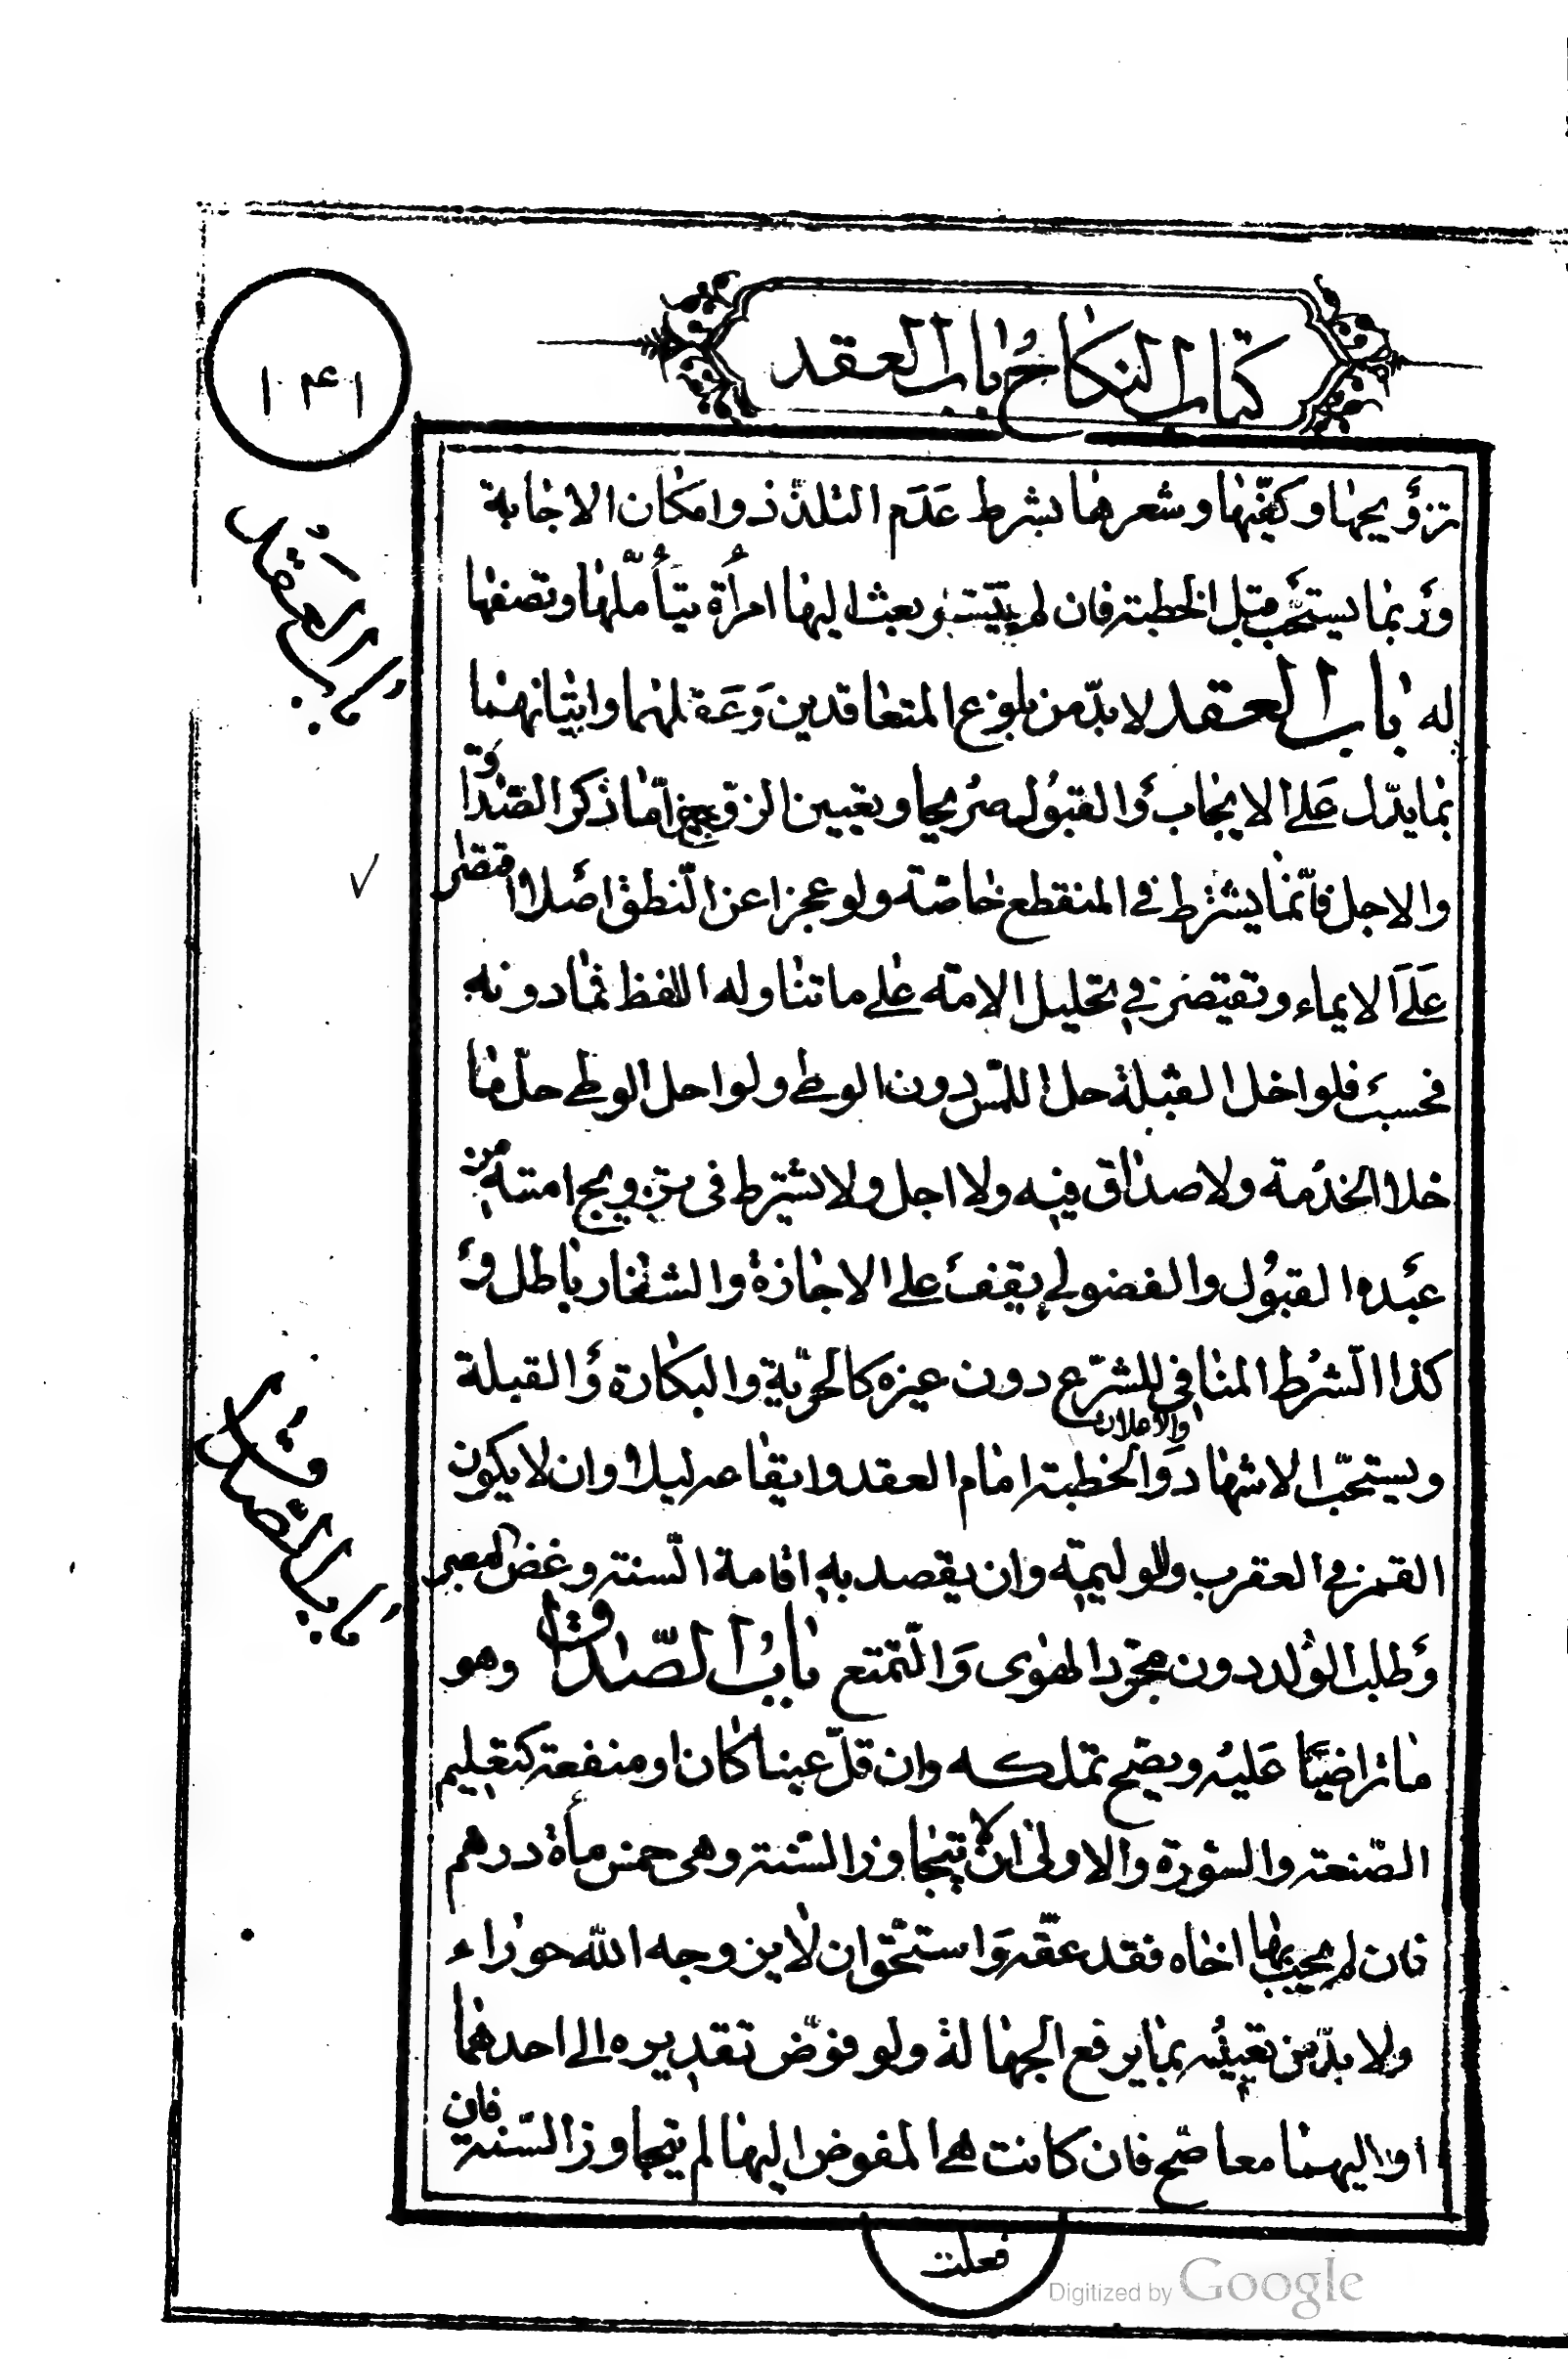 كتاب النكاح باب العقد
١٠٤١
تزويجها وكفّيها وشعرها بشرط عدم التلذذ وامكان الاجابة
وربما يستحب قبل الخطبة فان لم يتيسر بعث اليها امرأة يتأملها وتصفها
له باب العقد لا بدّ من بلوغ المتعاقدين وعقلهما واتيانهما
بما يدلّ على الايجاب والقبول صريحا وتعيين الزوجين امّا ذكر الصداق
والاجل فانّما يشترط في المنقطع خاصّة ولو عجزا عن النّطق اصلا اقتصرا
على الايماء ونقتصر في تحليل الامة على ما تناوله اللفظ فما دونه
فحسب فلو احل القبلة حل اللمس دون الوطي ولو احل الوطي حلّ ما
خلا الخدمة ولا صداق فيه ولا اجل ولا يشترط في تزويج امته من
عبده القبول والفضولي يقف على الاجازة والشغار باطل و
كذا الشرط المنافي للشرع دون غيره كالحرية والبكارة والقبلة
ويستحبّ الاشهاد والاعلان والخطبة امام العقد وايقاعه ليلا وان لا يكون
القمر في العقرب والوليمة وان يقصد به اقامة السنة وغض البصر
وطلب الولد دون مجرّد الهوى والتّمتع باب الصّداق وهو
ما تراضيا عليه ويصح تملكه وان قلّ عينا كان او منفعة كتعليم
الصّنعة والسورة والاولى ان لا يتجاوز السّنة وهى خمس مأة درهم
فان لم يجب بها اخاه فقد عقّه واستحق ان لا يزوجه الله حوراء
ولا بدّ من تعيينه بما يرفع الجهالة ولو فوّض تقديره الى احدهما
او اليهما معا صحّ فان كانت هي المفوض اليها لم يتجاوز السّنة فان
فعلت
باب العقد
باب الصّداق
Digitized by Google